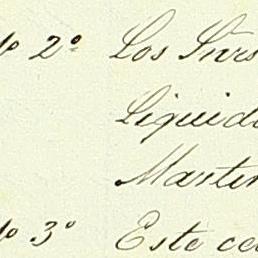 2º Los Sres
Liquid
Manten
3º Este ce